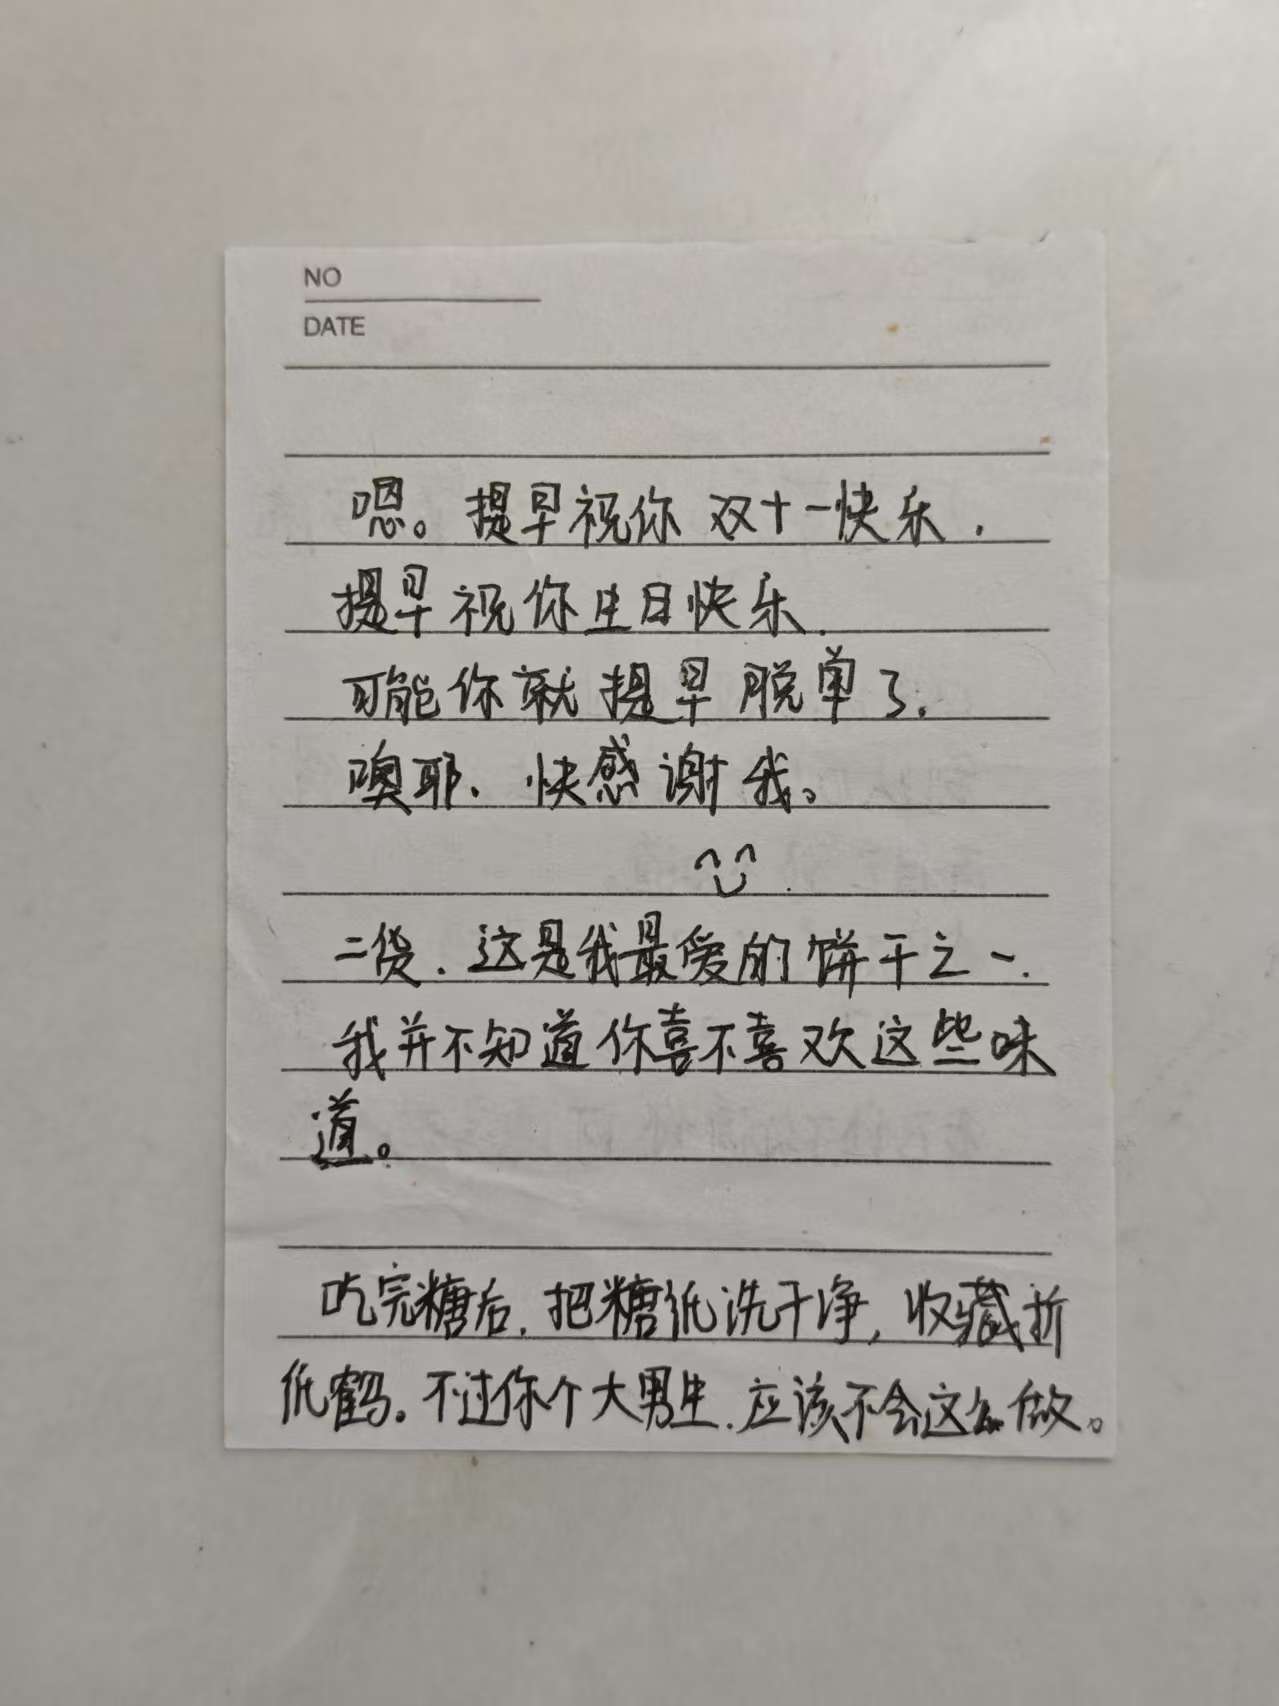 NO
DATE
嗯。提早祝你双十一快乐.
提早祝你生日快乐.
可能你就提早脱单了.
噢耶、快感谢我。
二货.这是我最爱的饼干之一.
我并不知道你喜不喜欢这些味
道。
吃完糖后,把糖纸洗干净,收藏折
纸鹤。不过你个大男生.应该不会这么做。